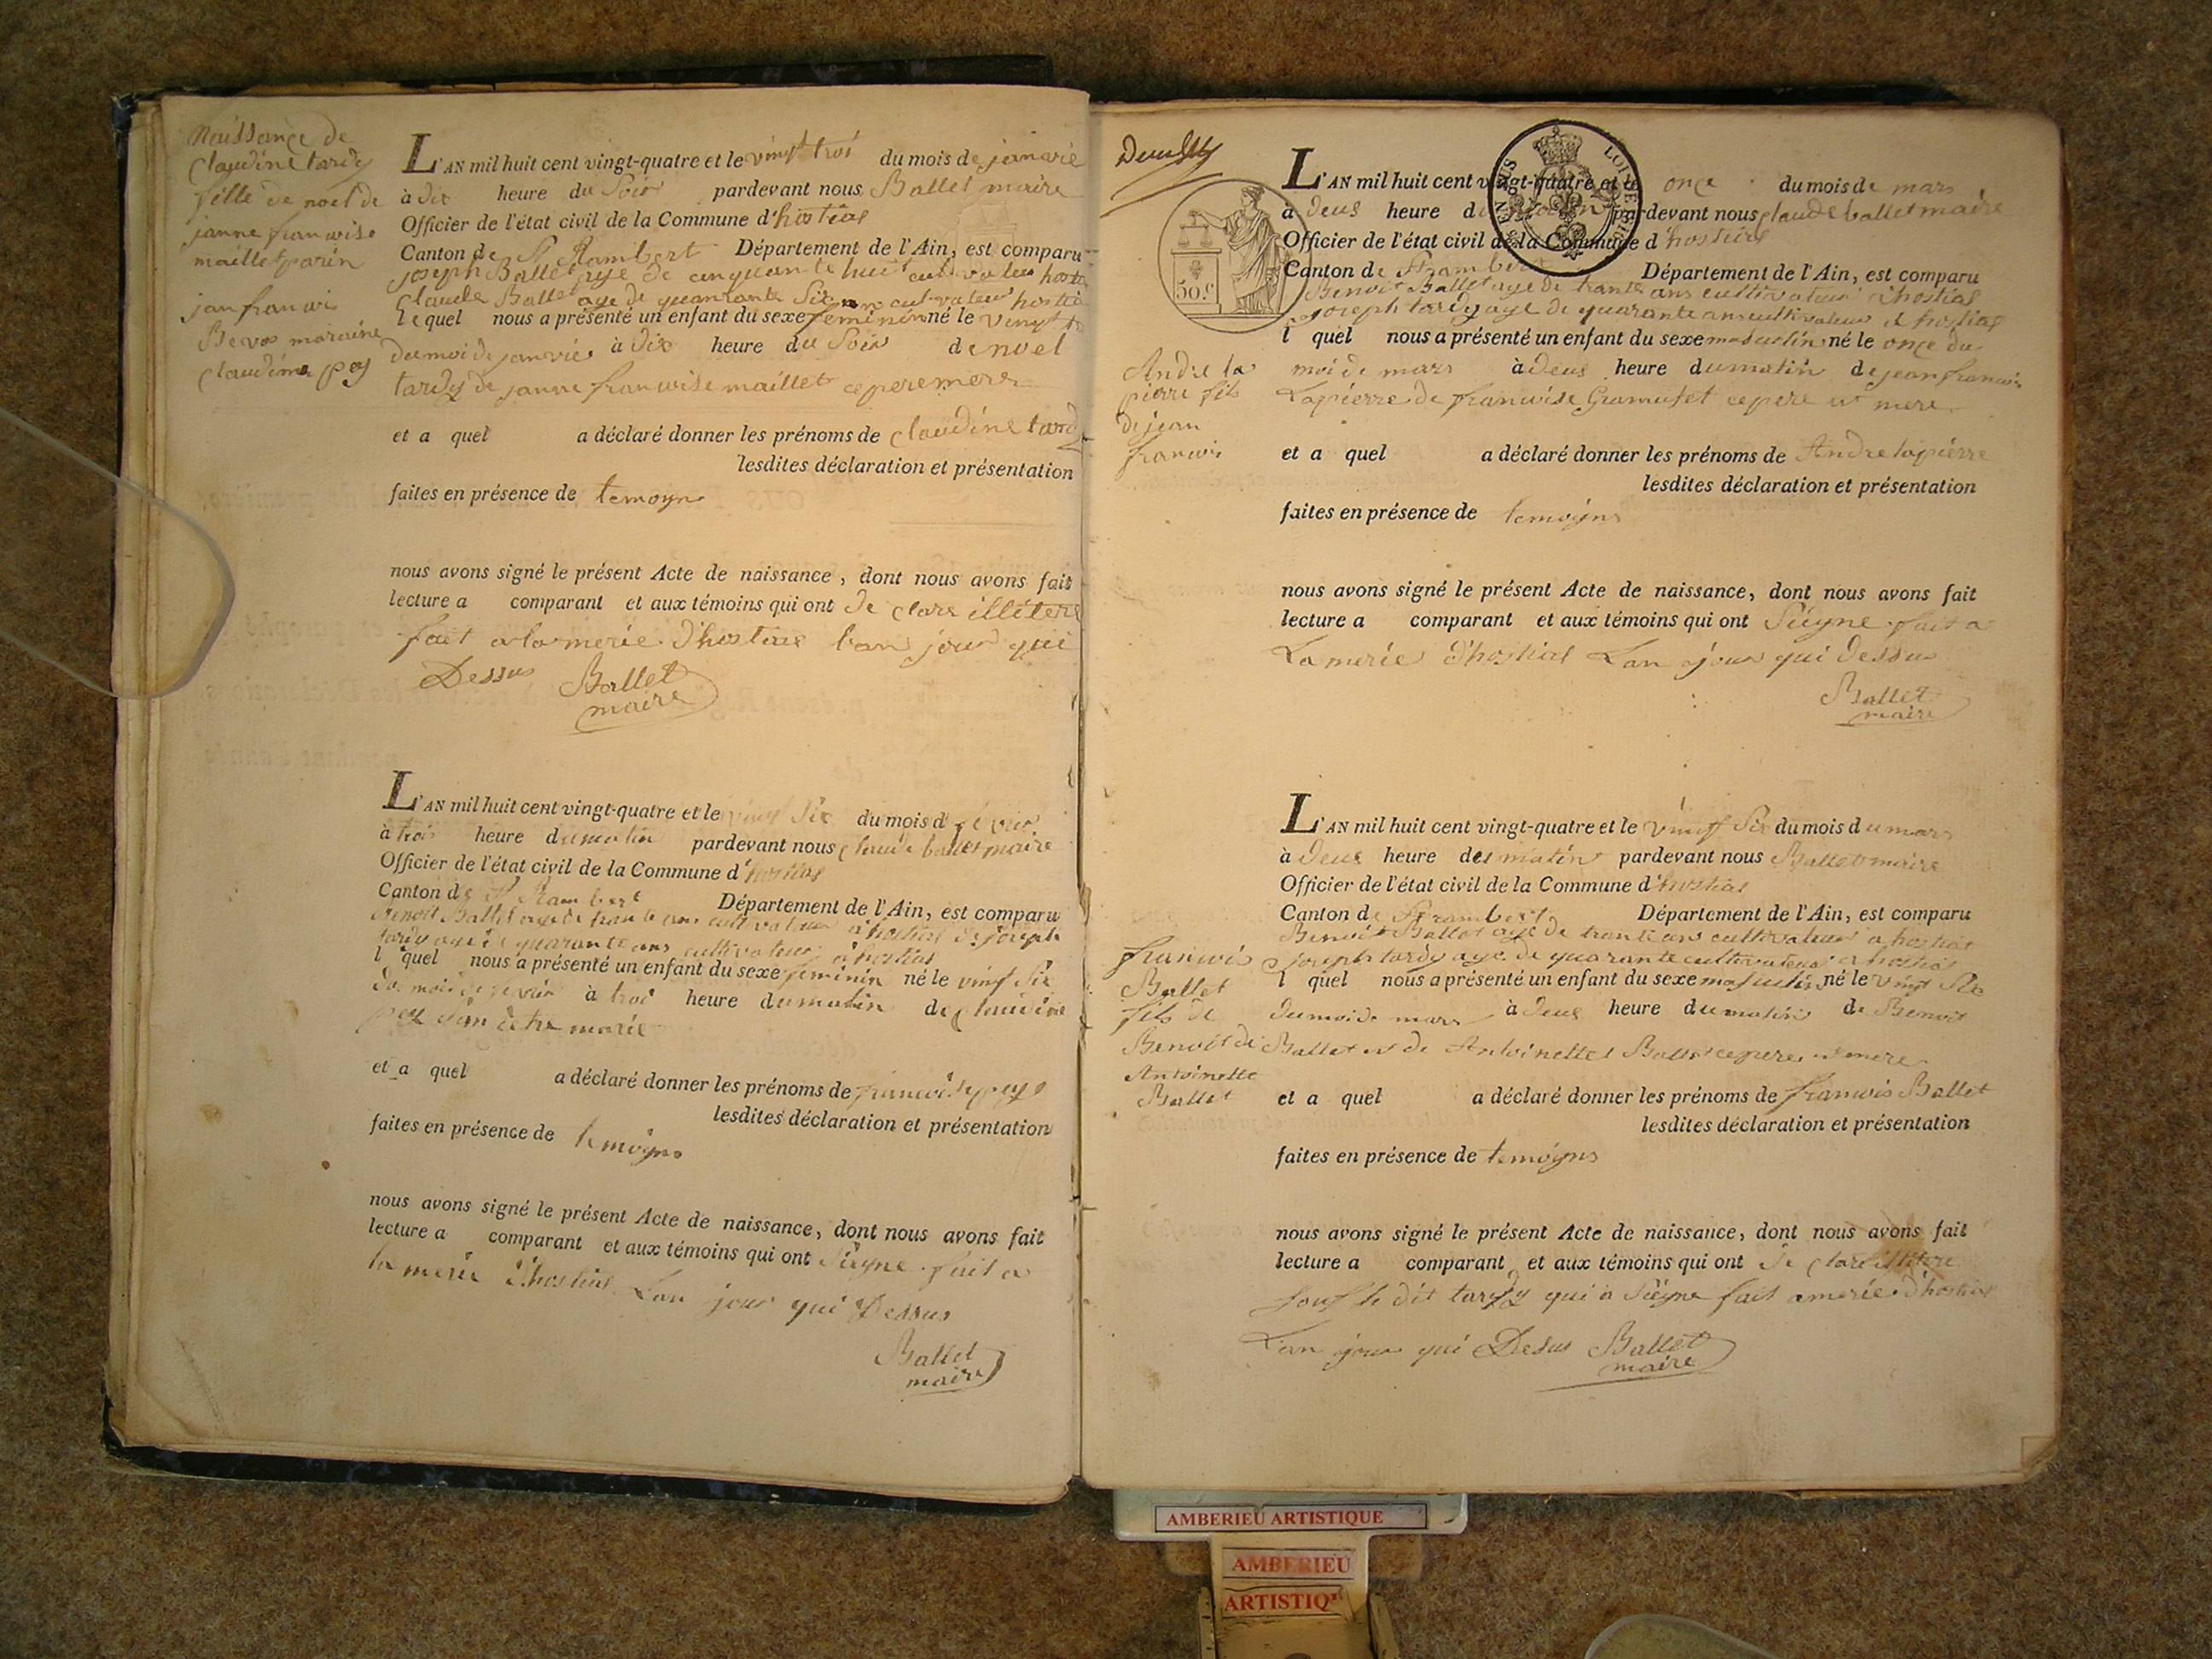 Naissance de
Claudine tardy
fille de noel de
janne franwise
maillet parin
jan franwis
Bevos maraine
claudine pey
L'AN mil huit cent vingt-quatre et le vingt trois du mois de janvié
à dix heure du Soir pardevant nous Ballet maire
Officier de l'état civil de la Commune d'hostias
Canton de St Rambert Département de l'Ain, est comparu
joseph Ballet age de cinquante huit cultivateur
Claude Ballet age de quarante Six ans cultivateur
lequel nous a présenté un enfant du sexe feminin né le vingt
du moi de janvié à dix heure du Soir de noel
tardy de janne franwise maillet ce pere mere
et a quel a déclaré donner les prénoms de claudine tardy
lesdites déclaration et présentation
faites en présence de temoyns
nous avons signé le présent Acte de naissance, dont nous avons fait
lecture a comparant et aux témoins qui ont de clare illétere
fait a la merie d'hostias lan jour qui
Dessus Ballet
maire
L'AN mil huit cent vingt-quatre et le vingt Six du mois d
à trois heure du matin pardevant nous claude ballet maire
Officier de l'état civil de la Commune d'hostias
Canton de St Rambert Département de l'Ain, est comparu
Benoit Ballet age de trante ans cultivateur a hostias de joseph
tardy age de quarante ans cultivateur a hostias
l quel nous a présenté un enfant du sexe feminin né le vingt Six
du mois de à troi heure du matin de claudine
pey san être marié
et a quel a déclaré donner les prénoms de
lesdites déclaration et présentation
faites en présence de temoyns
nous avons signé le présent Acte de naissance, dont nous avons fait
lecture a comparant et aux témoins qui ont Siigne fait a
la merie d'hostias Lan jour qui Dessus
Ballet
maire
50.C
L'AN mil huit cent vingt-quatre et le onze du mois de mars
à deus heure du matin pardevant nous claude ballet maire
Officier de l'état civil de la Commune d'hostias
Canton de St rambert Département de l'Ain, est comparu
Benoit Ballet age de trante ans cultivateur a hostias
joseph tardy age de quarante ans cultivateur a hostias
l quel nous a présenté un enfant du sexe masculin né le onze du
moi de mars à deus heure du matin de jean franwis
Lapierre de franwise Gramusset ce pere et mere
et a quel a déclaré donner les prénoms de Andre lapierre
lesdites déclaration et présentation
faites en présence de temoigns
nous avons signé le présent Acte de naissance, dont nous avons fait
lecture a comparant et aux témoins qui ont Siigne fait a
La merie d'hostias Lan jour qui dessus
Ballet
maire
Andre la
pierre fils
de jean
franwis
L'AN mil huit cent vingt-quatre et le vingt Six du mois du mars
à deus heure des matin pardevant nous Ballet maire
Officier de l'état civil de la Commune d'hostias
Canton de St rambert Département de l'Ain, est comparu
Benoit Ballet age de trante ans cultivateur a hostias
joseph tardy age de quarante cultivateur a hostias
l quel nous a présenté un enfant du sexe masculin né le vingt Six
du moi de mars à deus heure du matin de Benoit
Ballet et de Antoinette Ballet ce pere et mere
et a quel a déclaré donner les prénoms de franwis Ballet
lesdites déclaration et présentation
faites en présence de temoigns
nous avons signé le présent Acte de naissance, dont nous avons fait
lecture a comparant et aux témoins qui ont de clare illitere
souf le dit tardy qui a Siigne fait a merie d'hostias
Lan jour qui Desus Ballet
maire
franwis
Ballet
fils de
Benoit de
Antoinette
Ballet
AMBERIEU ARTISTIQUE
AMBERIEU
ARTISTIQ